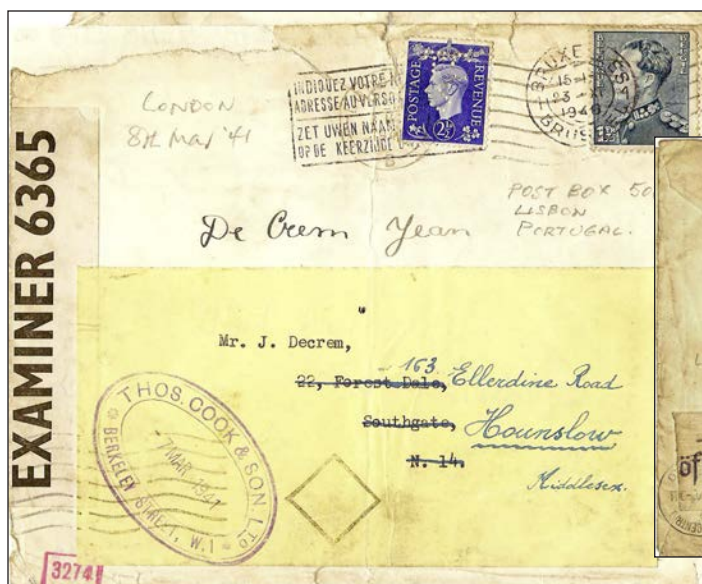 EXAMINER 6365
LONDON
8th Mar '41
INDIQUEZ VOTRE
ADRESSE AU VERSO
ZET UWEN NAAM
OP DE KEERZIJDE
POSTAGE
REVENUE
2½
BRUXELLES
15-
23-
1940
POST BOX 50
LISBON
PORTUGAL.
De Crem Jean
Mr. J. Decrem,
163
22, Forest Dale, Ellerdine Road
Southgate, Hounslow
N. 14.
Middlesex.
THOS. COOK & SON. LTD
7 MAR 1941
BERKELEY STREET, W.1
3274
öf